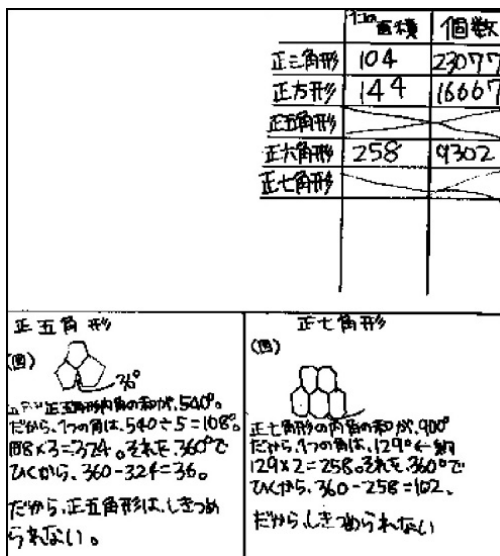 1つの面積 個数
正三角形 104 23077
正方形 144 16667
正五角形
正六角形 258 9302
正七角形
正五角形
(図)
36°
正五角形内角の和が、540°。
だから、1つの角は、540÷5=108°。
108×3=324。それを、360°で
ひくから、360-324=36。
だから、正五角形は、しきつめ
られない。
正七角形
(図)
正七角形の内角の和が、900°
だから、1つの角は、129°←約
129×2=258。それを、360°で
ひくから、360-258=102。
だから、しきつめられない